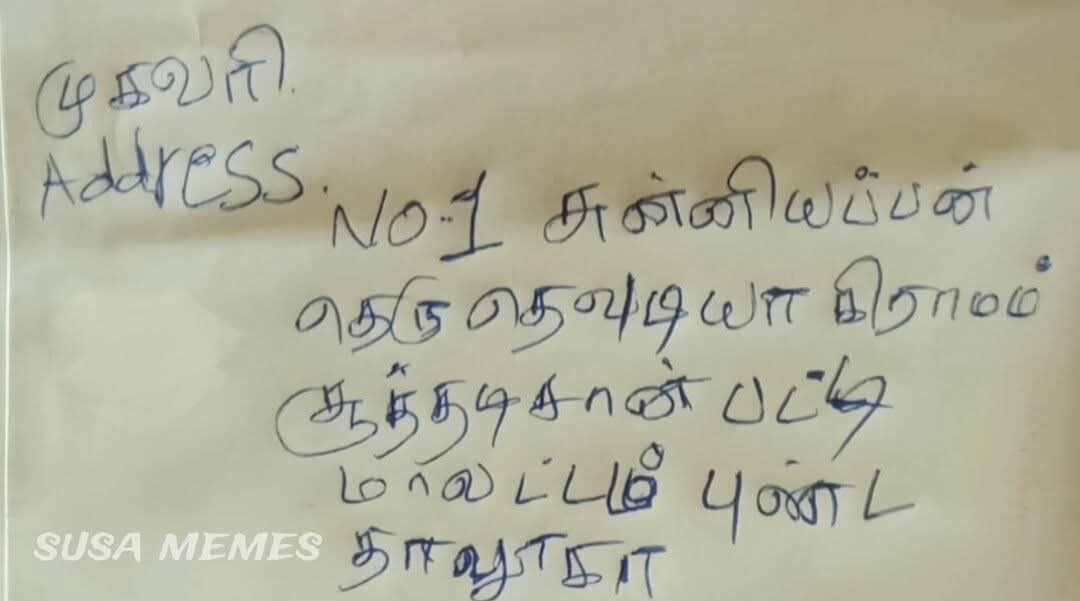 முகவரி.
Address.
NO-1 சுன்னியப்பன்
தெரு தெவுடியா கிராமம்
சூத்தடிசான் பட்டி
மாவட்டம் புண்ட
தாலுகா
SUSA MEMES